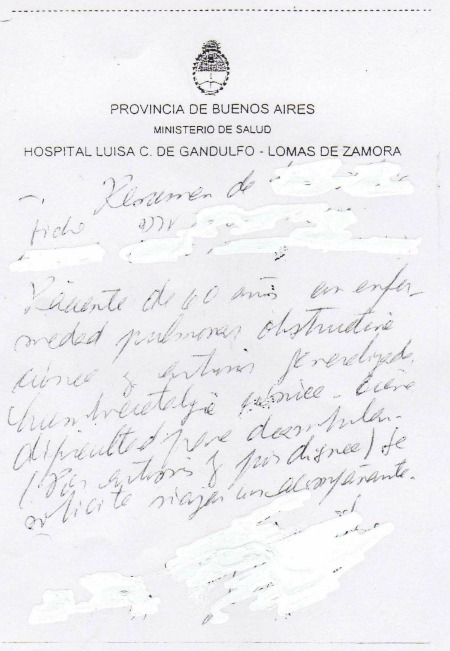 PROVINCIA DE BUENOS AIRES
MINISTERIO DE SALUD
HOSPITAL LUISA C. DE GANDULFO - LOMAS DE ZAMORA
Resumen de
Paciente de 60 años con enfer-
medad pulmonar obstructiva
crónica y artrosis generalizada.
crónica. Tiene
dificultad para deambular.
(Por artrosis y por disnea) Se
solicita viajar con acompañante.